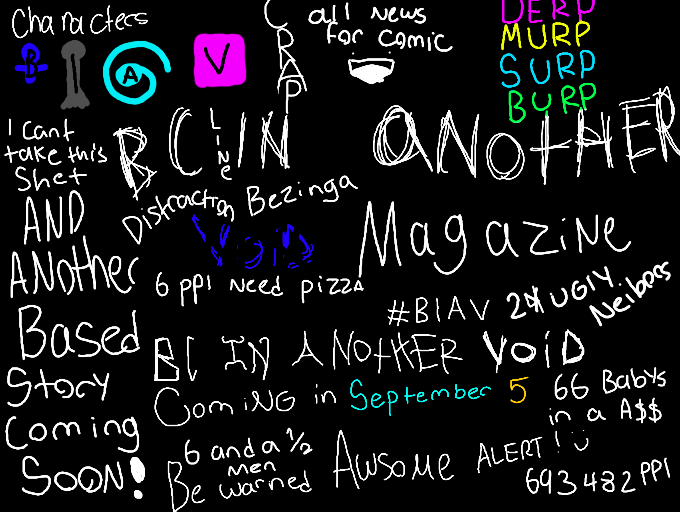 Characters
B
A
V
CRAP
all News
for comic
DERP
MURP
SURP
BURP
I cant
take this
Shet
BC IN
LINE
ANOTHER
Distraction Bezinga
Void
Magazine
AND
ANother
6 ppl Need pizza
#BIAV
UGIY
Neibors
Based
Story
Coming
SOON!
BC IN ANOTHER VOID
Coming in September 5
66 Babys
in a A$$
6 and a 1/2
men
Be warned
Awsome ALERT!
693482 PPl